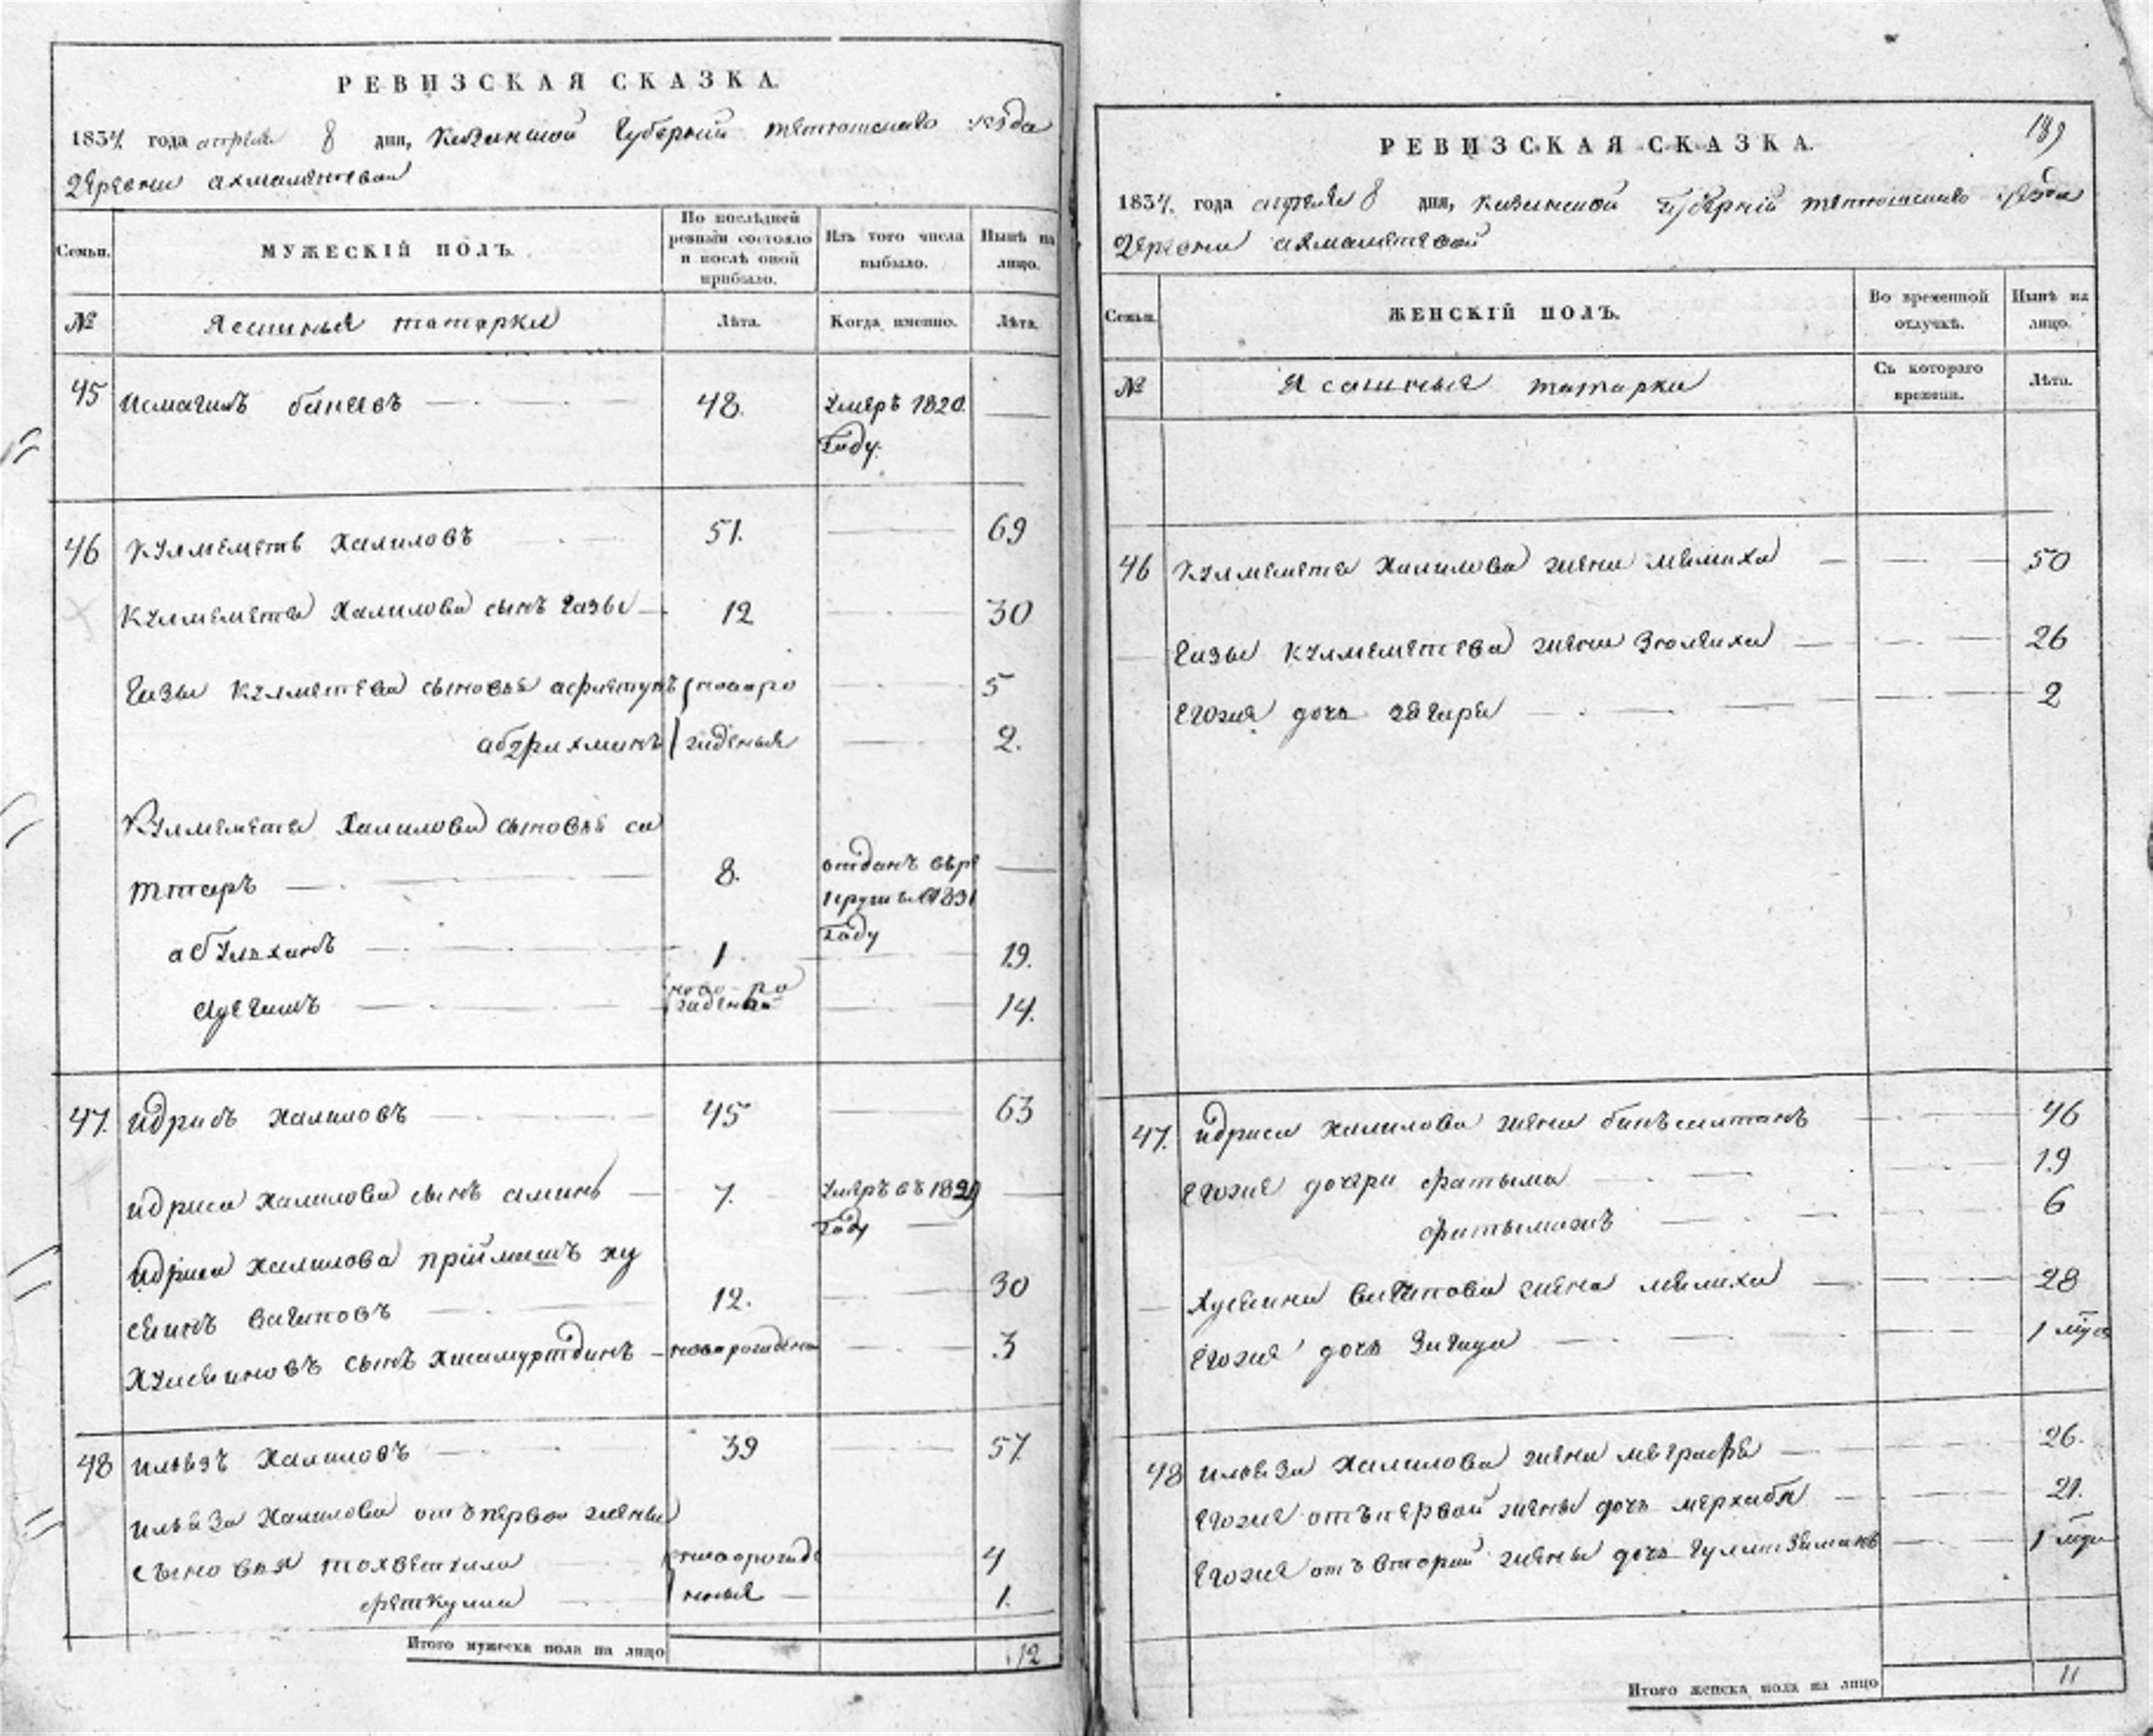 РЕВИЗСКАЯ СКАЗКА.
1834 года апреля 8 дня, Казанской Губернии тетюшскаго уезда
деревни ахмаметевой
Семьи.
МУЖЕСКІЙ ПОЛЪ.
По послѣдней ревизіи состояло и послѣ оной прибыло.
Изъ того числа выбыло.
Нынѣ на лицо.
№
Ясашныя татары
Лѣта.
Когда именно.
Лѣта.
45 Исмагилъ банаевъ 48. умеръ 1820.
году.
46 Кулмеметь Халиловъ 51. 69
Кулмеметя Халилова сынъ Газы 12 30
Газы Кулметева сыновья асфятунъ новоро 5
абдрахманъ жденыя 2.
Кулмеметя Халилова сыновья са
ттаръ 8. отданъ вър
1831
году
абульханъ 1. 19.
ново-ро
жденый 14.
47. идрисъ Халиловъ 45 63
идриса Халилова сынъ аминь 7. умеръ въ 1829
году
идриса Халилова пріймышъ ху
сеинъ вагаповъ 12. 30
Хусеиновъ сынъ Хисамутдинъ новорожденъ 3
48 ильязъ Халиловъ 39 57
ильяза Халилова отъ первой жены
сыновья тохветхилла новорожде 4
фяткулла ныя 1.
Итого мужеска пола на лицо 12
189
РЕВИЗСКАЯ СКАЗКА.
1834. года апреля 8 дня, казанской Губерніи тетюшскаго уезда
деревни ахмаметевой
Семьи.
ЖЕНСКІЙ ПОЛЪ.
Во временной отлучкѣ.
Нынѣ на лицо.
№
Ясашныя татарки
Съ котораго времени.
Лѣта.
46 Кулмеметя Халилова жена малиха 50
Газы Кулмеметева жена Зюляиха 26
Егоже дочь 2
47. идриса Халилова жена бинъсилтанъ 46
Егоже дочери фатыма 19
6
Хусеина вагапова жена малиха 28
Егоже дочь Загида 1
48 ильяза Халилова жена 26.
Егоже отъ первой жены дочь мерхаба 21.
Егоже отъ второй жены дочь 1
Итого женска пола на лицо 11